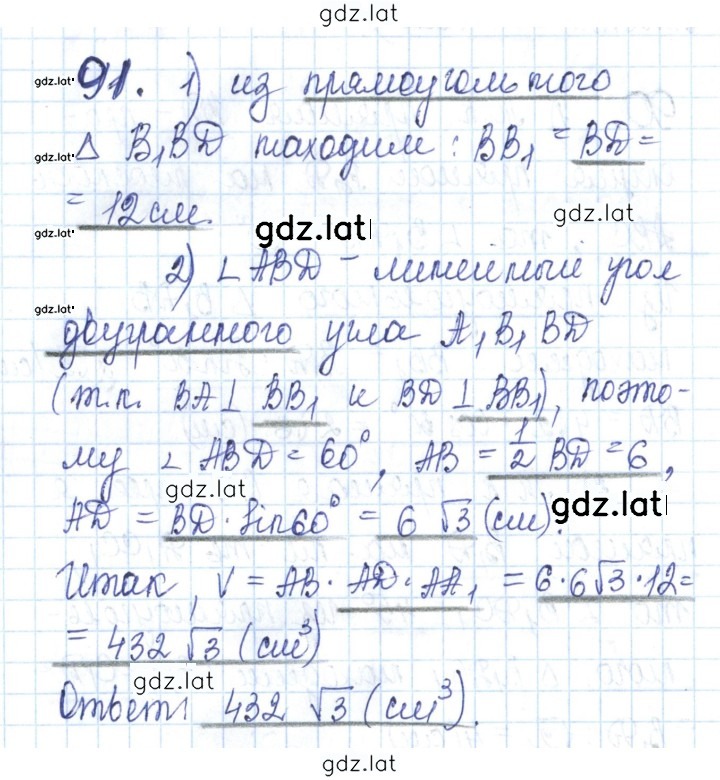 gdz.lat
gdz.lat 91. 1) из прямоугольного
gdz.lat Δ B₁BD находим: BB₁ = BD =
= 12 см. gdz.lat
gdz.lat gdz.lat
2) ∠ABD – линейный угол
gdz.lat
двугранного угла A₁B₁BD
(т.к. BA⊥BB₁ и BD⊥BB₁), поэто-
му ∠ABD = 60°, AB = 1/2 BD = 6,
gdz.lat gdz.lat
AD = BD · sin60° = 6√3 (см).
Итак, V = AB · AD · AA₁ = 6·6√3·12=
= 432√3 (см³)
gdz.lat
Ответ: 432√3 (см³).
gdz.lat